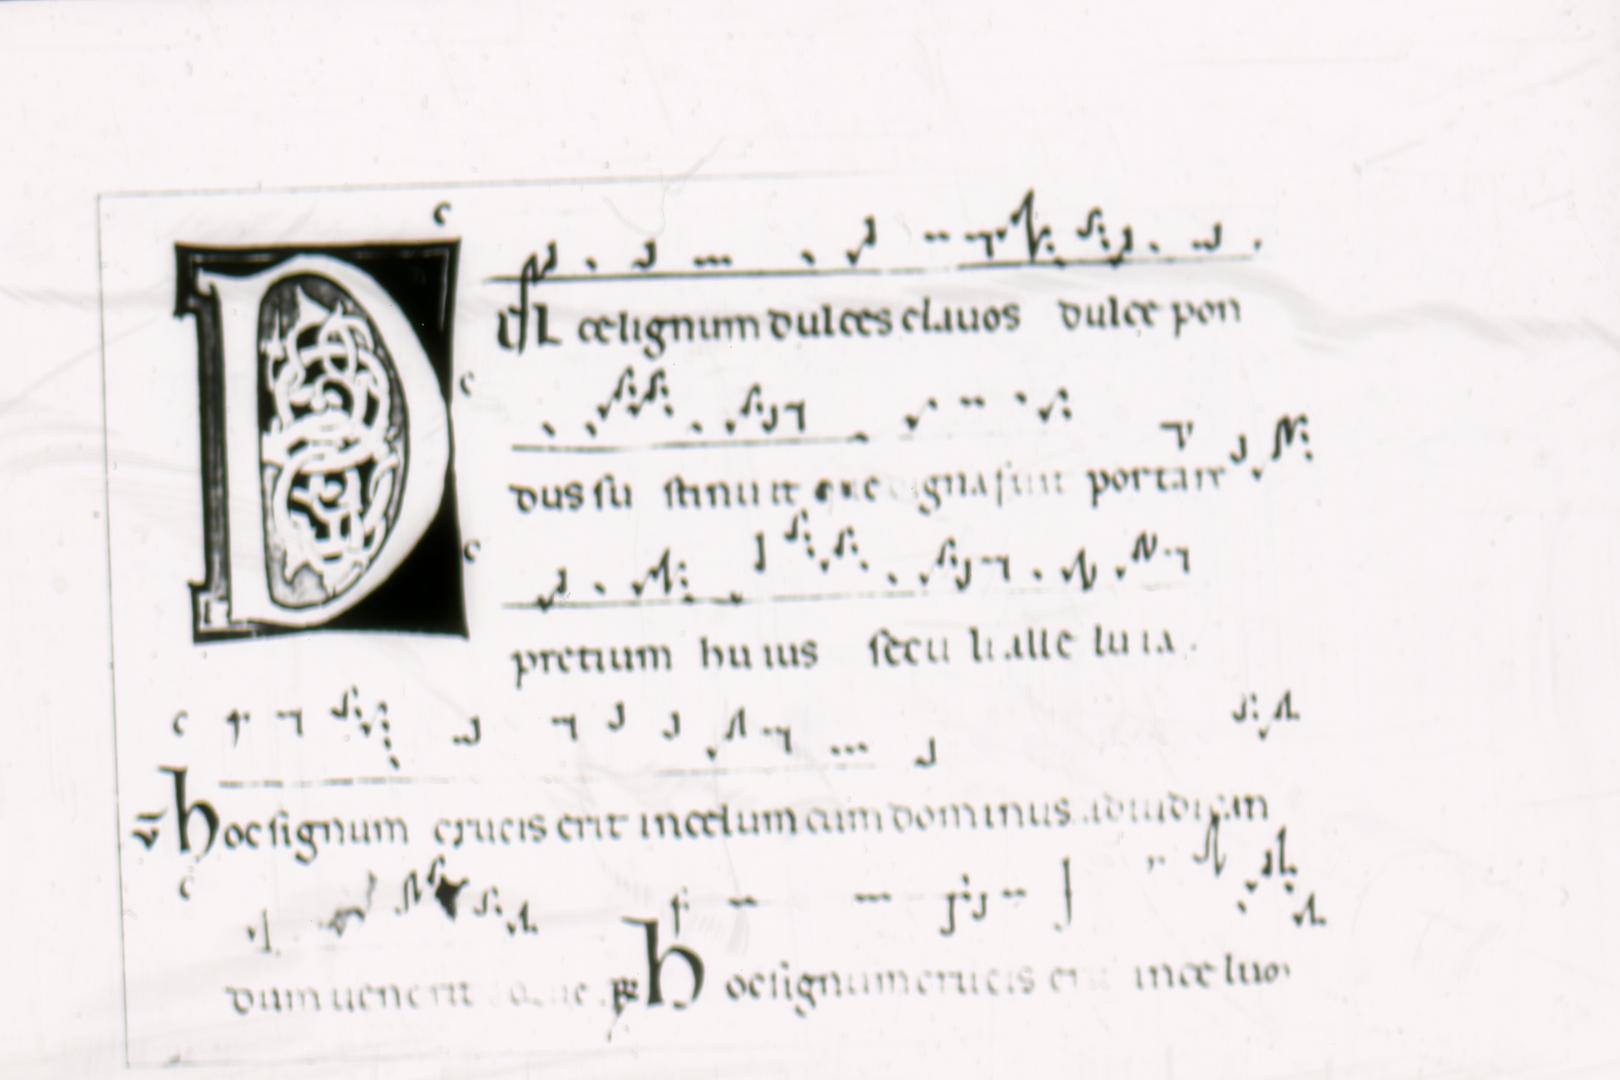 DUL celignum dulces clauos dulce pon
dus su stinuit que digna fuit portare
pretium hu ius secu li alle lu ia.
v hoc signum crucis erit in celum cum dominus adiudican
dum uenerit p hoc signum crucis erit in celuo